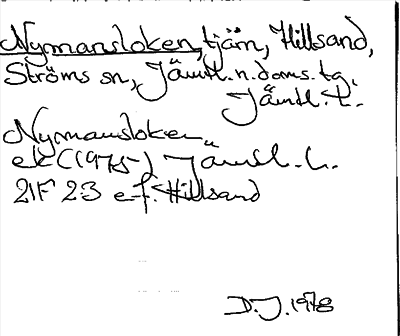 Nymansloken, tjärn, Hillsand,
Ströms sn, Jämtl. n. doms. tg.
Jämtl. l.
Nymansloken
ek (1975) Jämtl. l.
21F 23 e-f. Hillsand
D.J. 1978